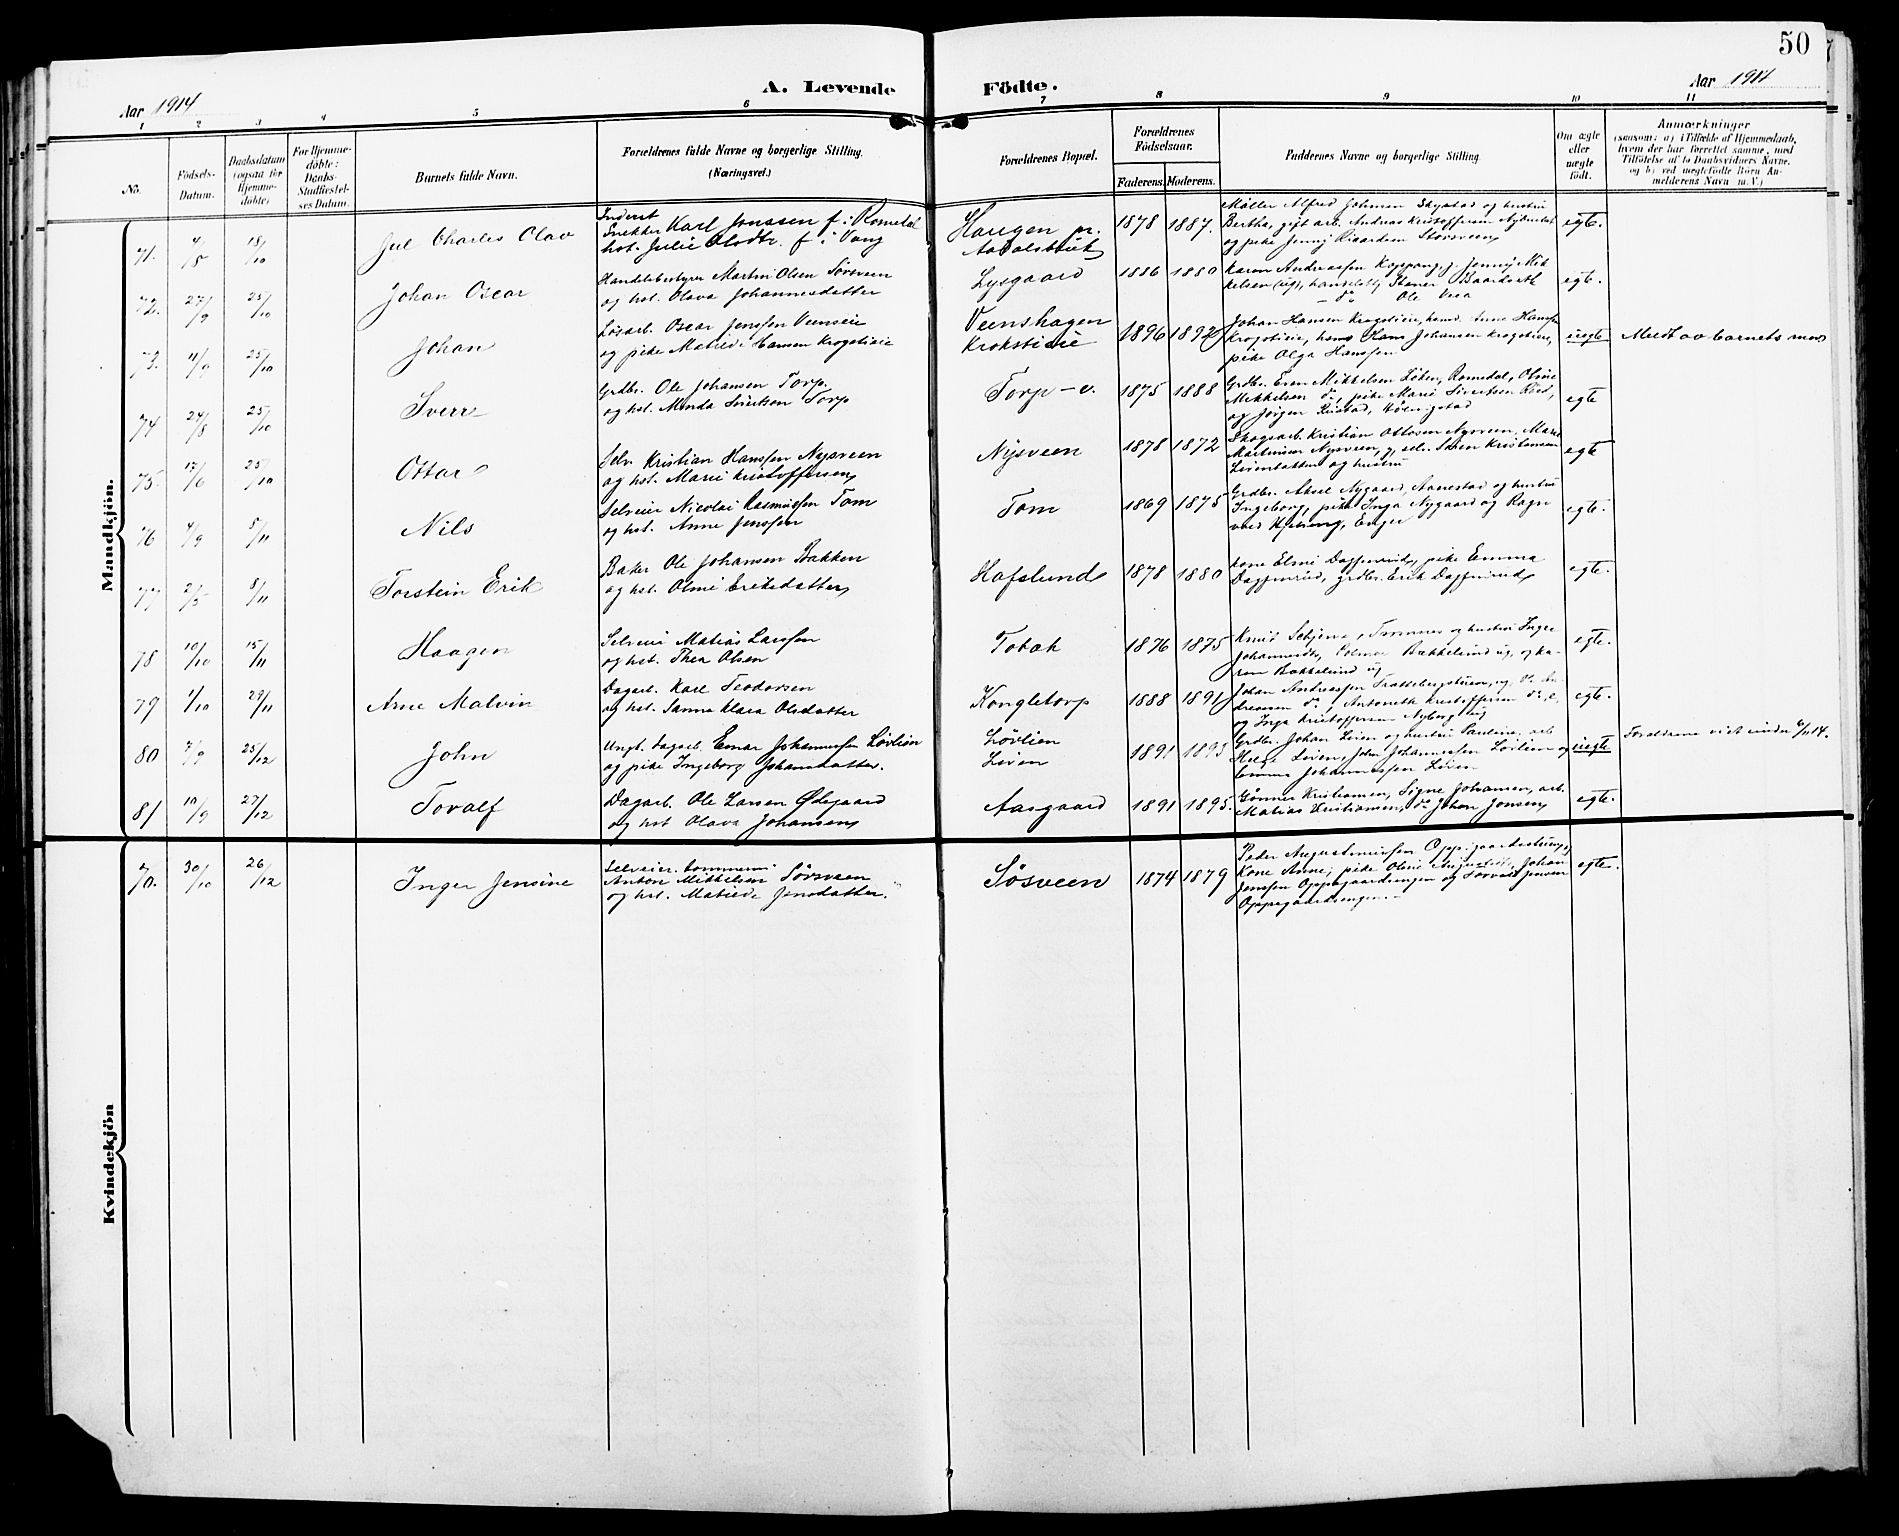 50
Aar 1914
A. Levende Födte.
Aar 1914
1 2 3 4 5 6 7 8 9 10 11
No.
Födsels-
Datum.
Daabsdatum
(ogsaa for
Hjemme-
döbte)
For Hjemme-
döbte:
Daabs-
Stadfæstel-
ses Datum.
Barnets fulde Navn.
Forældrenes fulde Navne og borgerlige Stilling.
(Næringsvei.)
Forældrenes Bopæl.
Forældrenes
Födselsaar.
Faderens. Moderens.
Faddernes Navne og borgerlige Stilling.
Om ægte
eller
uægte
födt.
Anmærkninger
(saasom: a) i Tilfælde af Hjemmedaab,
hvem der har forrettet samme, med
Tilföielse af to Daabsvidners Navne,
og b) ved uægtefödte Börn An-
melderens Navn m. V.)
Mandkjön.
71. 4/8 18/10 Jul Charles Olav
Inderst
Snekker Karl Jonssen f. i Romedal
hst. Julie Olsdtr. f. i Vang
Haugen pr.
Aadalsbruk
1878 1887.
Møller Alfred Johnsen Skystad og hustru
Bertha, gift arb. Andreas Kristoffersen
og pike Jenny Rikardsen Storsveen
egte.
72. 27/9 25/10 Johan Oscar
Handelsbestyrer Martin Olsen Sørsveen
og hst. Olava Johannesdatter
Lysgaard
1886 1880
Karen Andreassen Koppang, Jenny Mik
kelsen (ug), Stener Baardseth
- do Ole
egte.
73. 11/9 25/10 Johan
Løsarb. Oscar Jenssen Veenseie
og pike Matilde Hansen Krogstieie
Veenshagen
Krokstieie
1896 1892
Johan Hansen Krogstieie, Anne Hansen
Krogstieie, Hans Johansen Krogstieie,
pike Olga Hanssen
uegte
Meldt av barnets mor
74 24/8 25/10 Sverre
Grdbr. Ole Johansen Torp
og hst. Minda Sivertsen Torp
Torp - v.
1875 1888
Grdbr. Even Mikkelsen Løten, Romedal, Oline
Mikkelsen do, pike Marie Sivertsen
og Jørgen
egte
75. 17/6 25/10 Ottar
Selv. Kristian Hanssen Nysveen
og hst. Marie Kristoffersen
Nysveen
1878 1872
Skogsarb. Kristian Ottosen Nysveen, Marie
Martinsen Nysveen, Kristiansen
og hustru
egte
76 4/9 5/11 Nils
Selveier Nicolai Rasmussen Tom
og hst. Anne Jenssen
Tom
1869 1875
Grdbr. Aksel Nygaard, Aanestad og hustru
Ingeborg, pike Inga Nygaard og Ragn
vald Enger
egte.
77 2/5 8/11 Torstein Erik
Baker Ole Johansen Bakken
og hst. Oline Eriksdatter
Hafslund
1878 1880
Kone Elmi Dagfinrud, pike Emma
Dagfinrud, grdbr. Erik Dagfinrud
egte.
78 10/10 15/11 Haagen
Selveier Matias Larssen
og hst. Thea Olsen
Tobak
1876 1875
Knut og hustru Inger
Johannesdtr, Bakkelund ug. og Ka-
ren Bakkelund ug
egte.
79 1/10 29/11 Arne Malvin
Dagarb. Karl Teodorsen
og hst. Sanna Klara Olsdatter
Kongletorp
1888 1891
Johan Andreassen An-
dreassen do, Antoneth Kristoffersen do,
og Inga Kristoffersen Nyborg
egte.
80 7/9 25/12 John
Ungk. dagarb. Einar Johannessen Løvlien
og pike Ingeborg Johansdatter.
Løvlien
Leien
1891 1893
Grdbr. Johan Leien og hustru Pauline, arb
Helge Leien, John Johannessen Løvlien og
Emma Johannessen Leien
uegte
Forældrene viet 6/11 14.
81 10/9 27/12 Toralf
Dagarb. Ole Larsen Ødegaard
og hst. Olava Johansen
Aasgaard
1891 1895.
Gunner Kristiansen, Signe Johansen, arb.
Matias Kristiansen, do Johan Jonsen
egte.
Kvindekjön
70. 30/10 26/12 Inger Jensine
Selveier
Anton Mikkelsen Sørsveen
og hst. Matilde Jensdatter.
Søsveen
1874 1879
Peder Augustinussen
Kone Anne, pike Oline Augusta, Johan
Jenssen Oppegaardsengen og Torvald Jensen
Oppegaardsengen. -
egte.